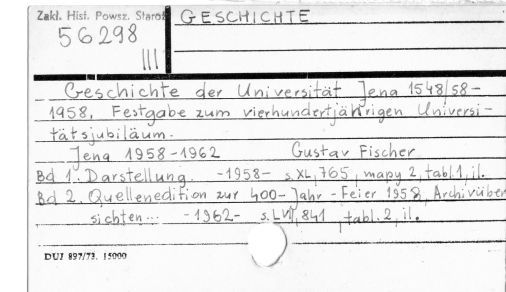 Zakł. Hist. Powsz. Staroż
GESCHICHTE
56298
III
Geschichte der Universität Jena 1548/58-
1958. Festgabe zum vierhundertjährigen Universi-
tätsjubiläum.
Jena 1958-1962 Gustav Fischer
Bd 1. Darstellung. -1958- s.XL, 765, mapy 2, tabl.1, il.
Bd 2. Quellenedition zur 400-Jahr-Feier 1958, Archivüber
sichten... -1962- s. 841, tabl.2, il.
DUJ 897/73. 15000